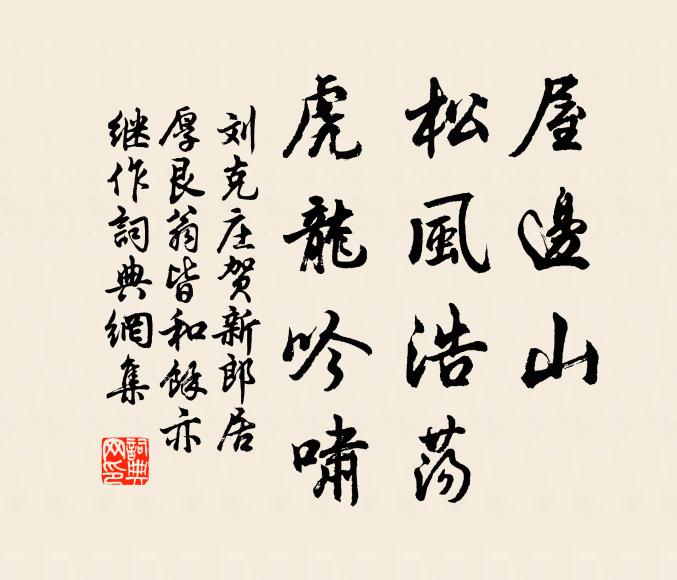 屋邊山
松風浩蕩
虎龍吟嘯
刘克庄贺新郎居
厚艮翁皆和餘亦
继作詞典網集
詞典网印